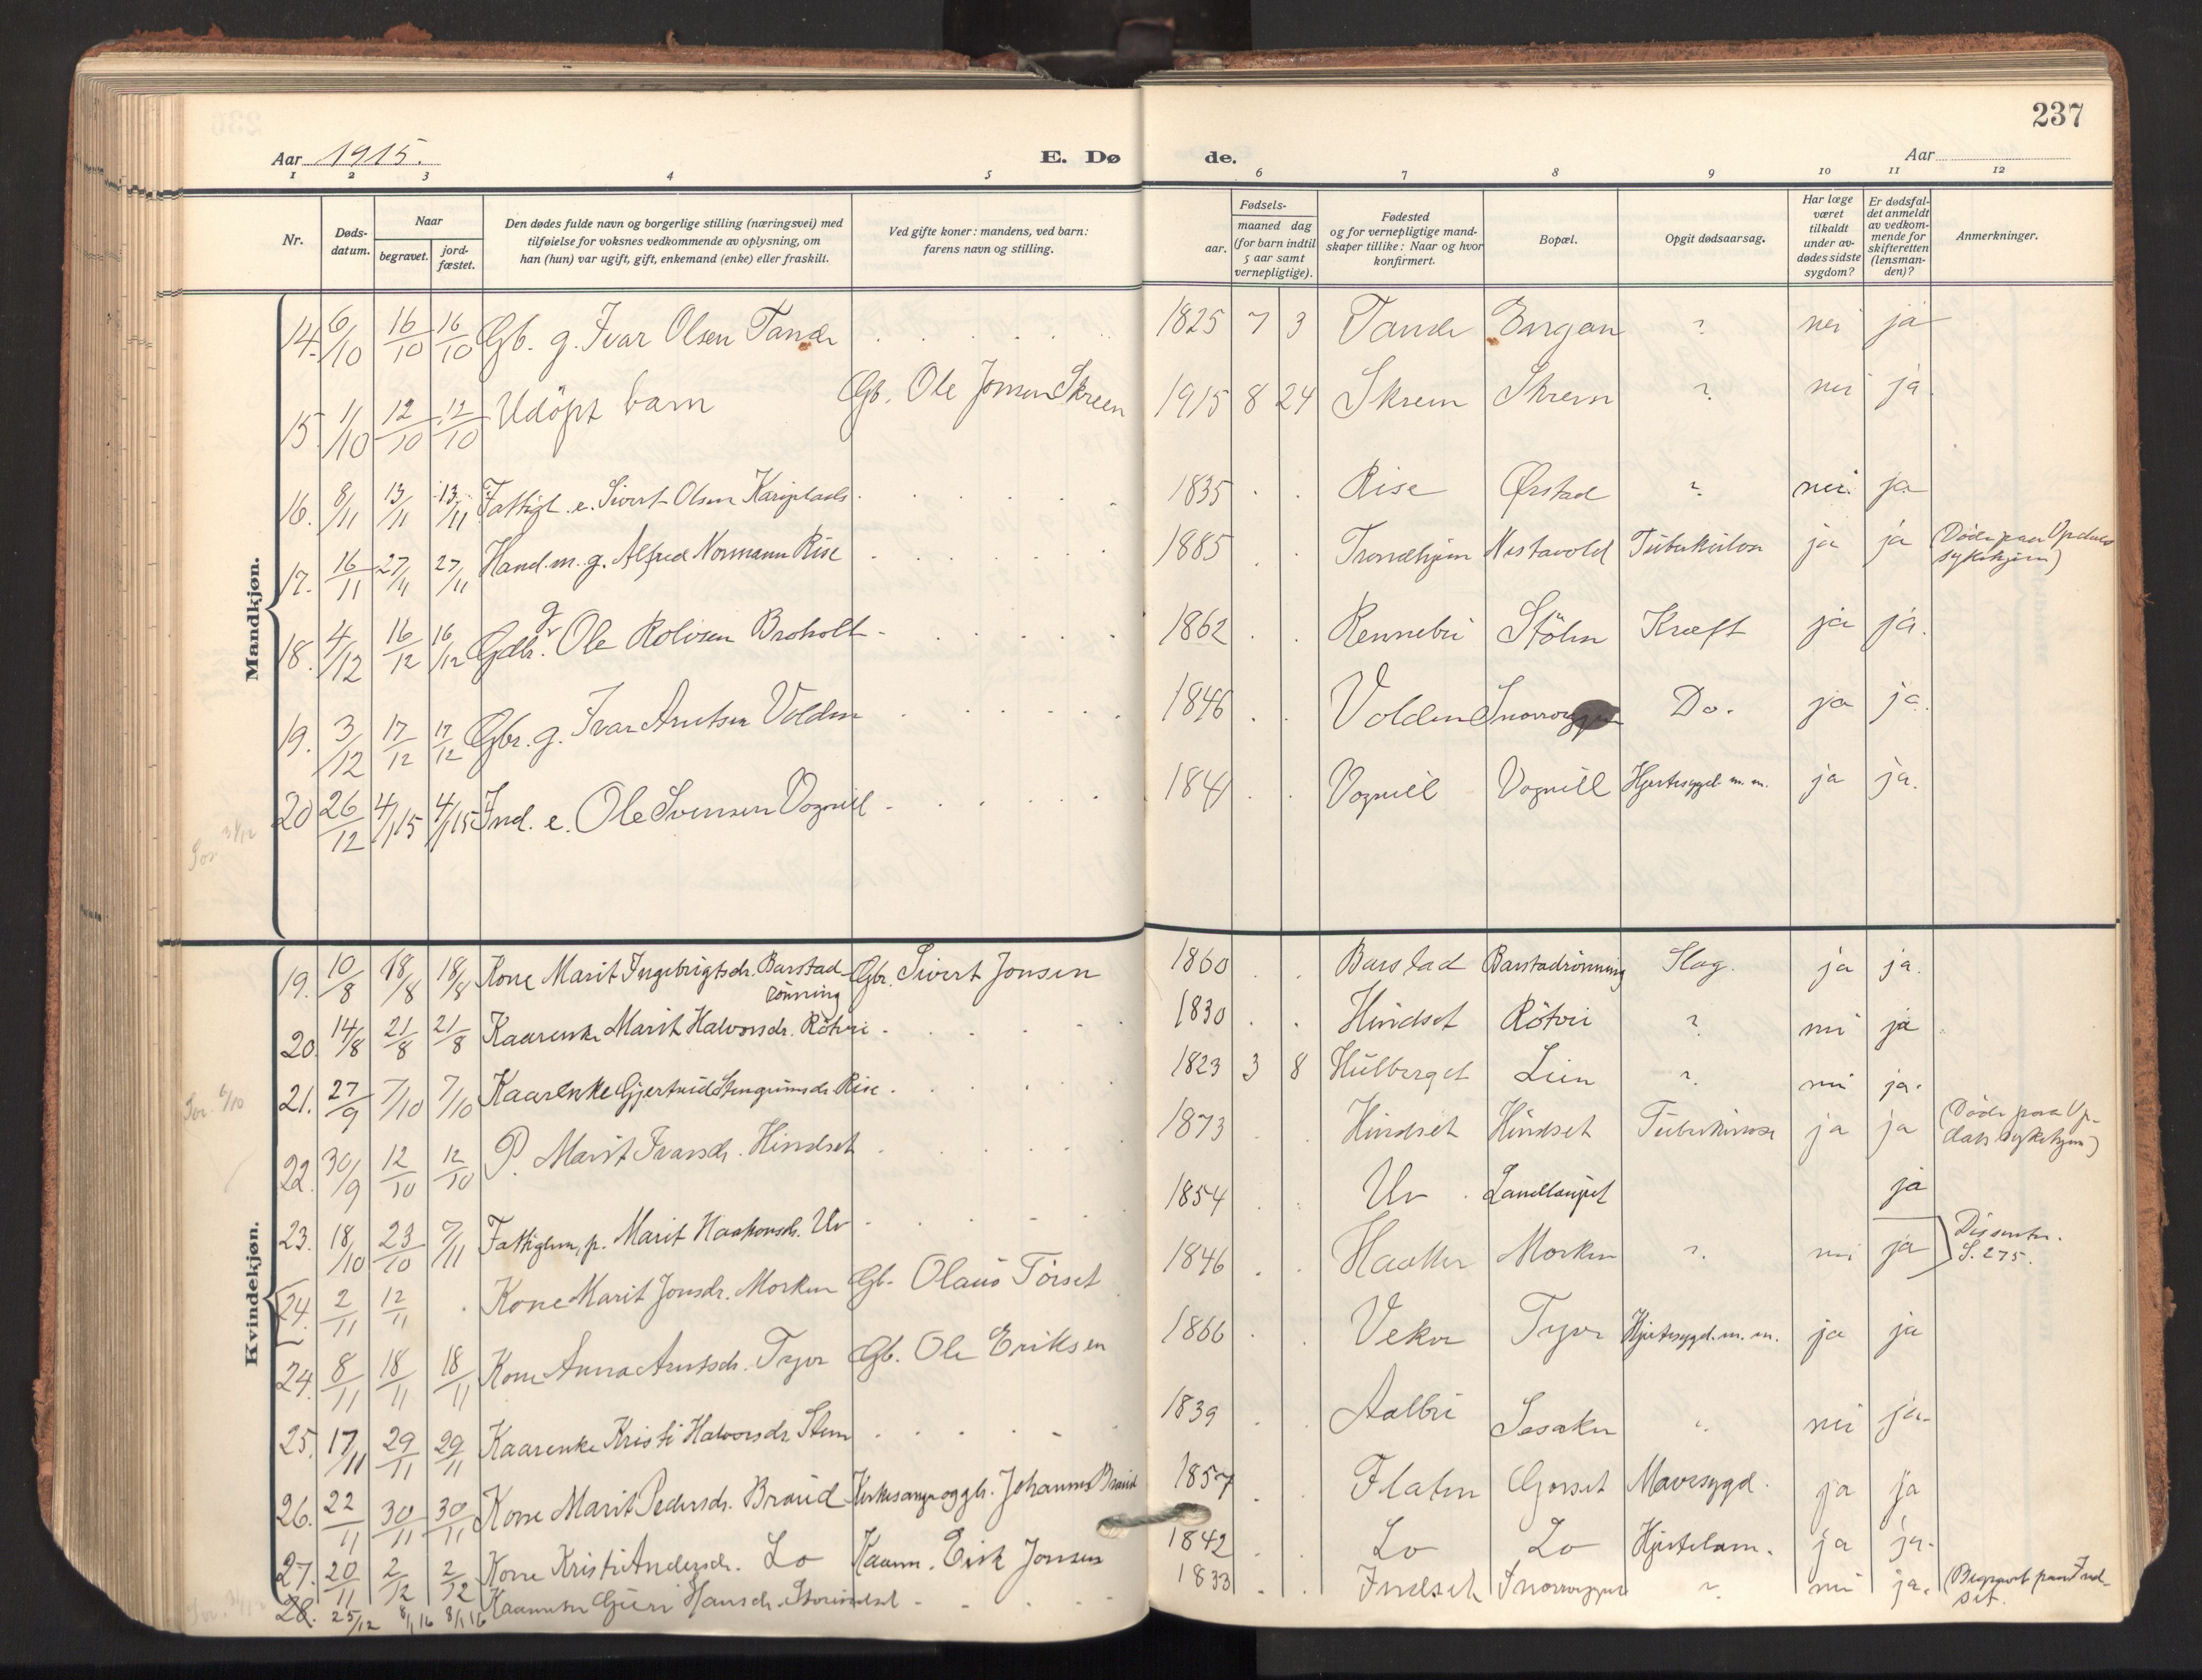 237
Aar 1915.
E. Dø
de.
Aar
1 2 3 4 5 6 7 8 9 10 11 12
Nr.
Døds-
datum.
Naar
begravet.
jord-
fæstet.
Den dødes fulde navn og borgerlige stilling (næringsvei) med
tilføielse for voksnes vedkommende av oplysning, om
han (hun) var ugift, gift, enkemand (enke) eller fraskilt.
Ved gifte koner: mandens, ved barn:
farens navn og stilling.
Fødsels-
aar.
maaned dag
(for barn indtil
5 aar samt
vernepligtige).
Fødested
og for vernepligtige mand-
skaper tillike: Naar og hvor
konfirmert.
Bopæl.
Opgit dødsaarsag.
Har læge
været
tilkaldt
under av-
dødes sidste
sygdom?
Er dødsfal-
det anmeldt
av vedkom-
mende for
skifteretten
(lensman-
den)?
Anmerkninger.
Mandkjøn.
14. 6/10 16/10 16/10 Gb. g. Ivar Olsen Tande 1825 7 3 Tande Bergan ? nei ja
15. 11/10 12/10 12/10 Udöpt barn Gb. Ole Jonsen Skreen 1915 8 24 Skreen Skreen ? nei ja.
16. 8/11 13/11 13/11 Fattigl. e. Sivert Olsen Kariplads 1835 Rise Ørstad ? nei. ja
17. 16/11 27/11 27/11 Hand.m. g. Alfred Normann Rise 1885 Trondhjem Nestavold Tuberkulose ja ja (Døde paa Opdals
sykehjem)
18. 4/12 16/12 16/12 Gdb. g. Ole Rolvsen Broholt 1862 Rennebu Stölen Kræft ja ja.
19. 3/12 17/12 17/12 Gbr. g. Ivar Arntsen Volden 1846 Volden Snoroggen Do. ja ja.
20 26/12 4/1 15 4/1 15 Ind. e. Ole Svensen Vognill 1841 Vognill Vognill Hjertesygd. m. m. ja ja.
Kvindekjøn.
19. 10/8 18/8 18/8 Kone Marit Ingebrigtsdr. Barstad-
rönning Gbr. Sivert Jonsen 1860 Barstad Barstadrönning Slag. ja ja.
20. 14/8 21/8 21/8 Kaarenke Marit Halvorsdr. Rötvei 1830 Hindset Rötvei ? nei ja
21. 27/9 7/10 7/10 Kaarenke Gjertrud Stengrimsdr. Rise 1823 3 8 Hulberget Lien ? nei ja.
22. 30/9 12/10 12/10 P. Marit Ivarsdr. Hindset 1873 Hindset Hindset Tuberkulose ja ja (Døde paa Op-
dals sykehjem)
23. 18/10 23/10 7/11 Fattiglem, p. Marit Haakonsdr. Uv 1854 Uv Landlaupet ja
24. 2/11 12/11 Kone Marit Jonsdr. Morken Gb. Olaus Törset 1846 Haaker Morken ? nei ja Dissenter.
S. 275.
24. 8/11 18/11 18/11 Kone Anna Arntsdr. Tyvr Gb. Ole Eriksen 1866 Vekve Tyvr Hjertesygd. m. m. ja ja
25. 17/11 29/11 29/11 Kaarenke Kristi Halvorsdr. Stem 1839 Aalbu nei ja.
26. 22/11 30/11 30/11 Kone Marit Pedersdr. Braud Kirkesanger og gb. Johannes Braud 1857 Flaten Gorset Mavesygd. ja ja
27. 20/11 2/12 2/12 Kone Kristi Andersdr. Lo Kaarm. Eirik Jonsen 1842 Lo Lo Hjertelam. ja ja.
28. 25/12 8/1 16 8/1 16 Guri Hansdr. 1833 Indset Snoroggen ? nei ja. (Begravet paa Ind-
set.